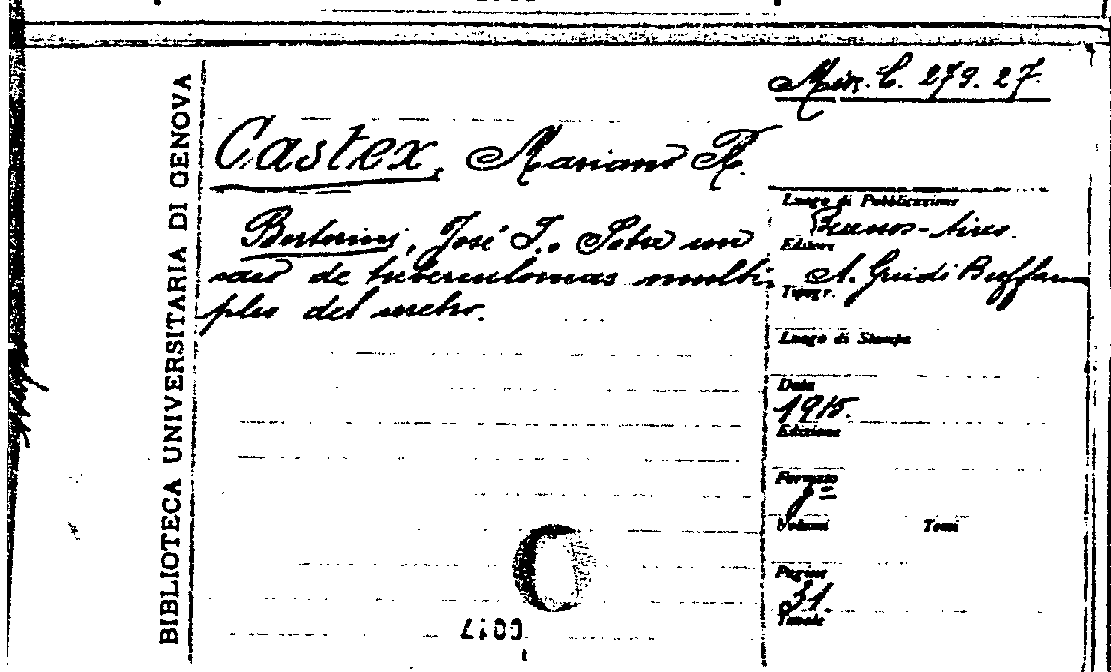 BIBLIOTECA UNIVERSITARIA DI GENOVA
Misc. C. 279. 27.
Castex, Mariano R.
Luogo di Pubblicazione
Buenos-Aires.
José J.. Sobre un
Editore
caso de tuberculomas multi-
A. Guidi Buffarini
Tipogr.
plos del
Luogo di Stampa
Data
Edizione
Formato
Volumi Tomi
Pagine
31.
Tavole